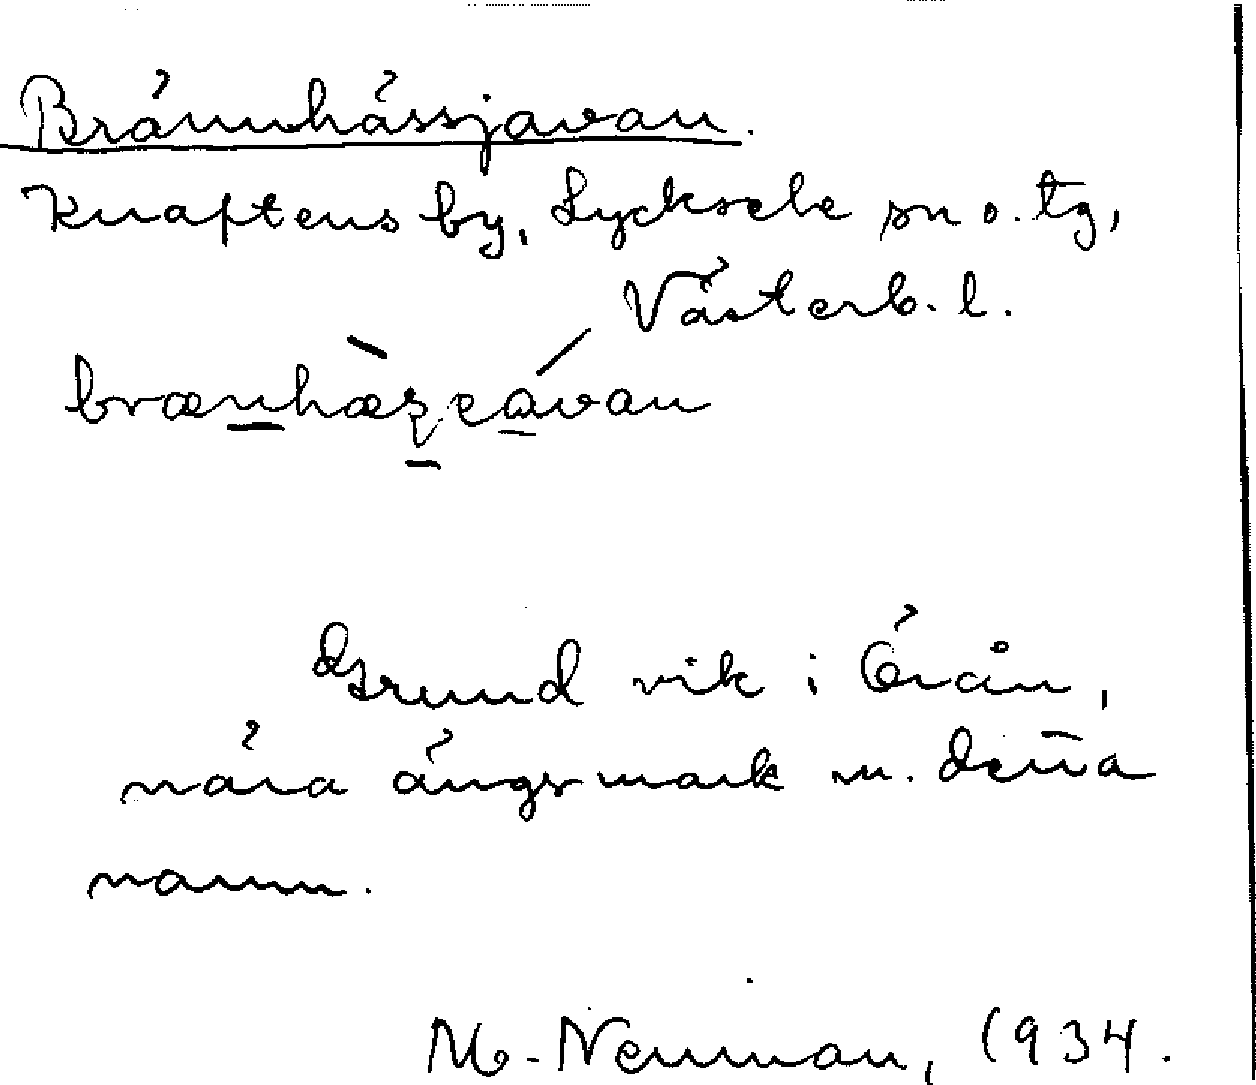 Brännhässjavan.
Knaftens by, Lycksele sn o. tg,
Västerb. l.
Grund vik i Örån,
nära ängsmark m. den̄a
namn.
M. Neuman, 1934.